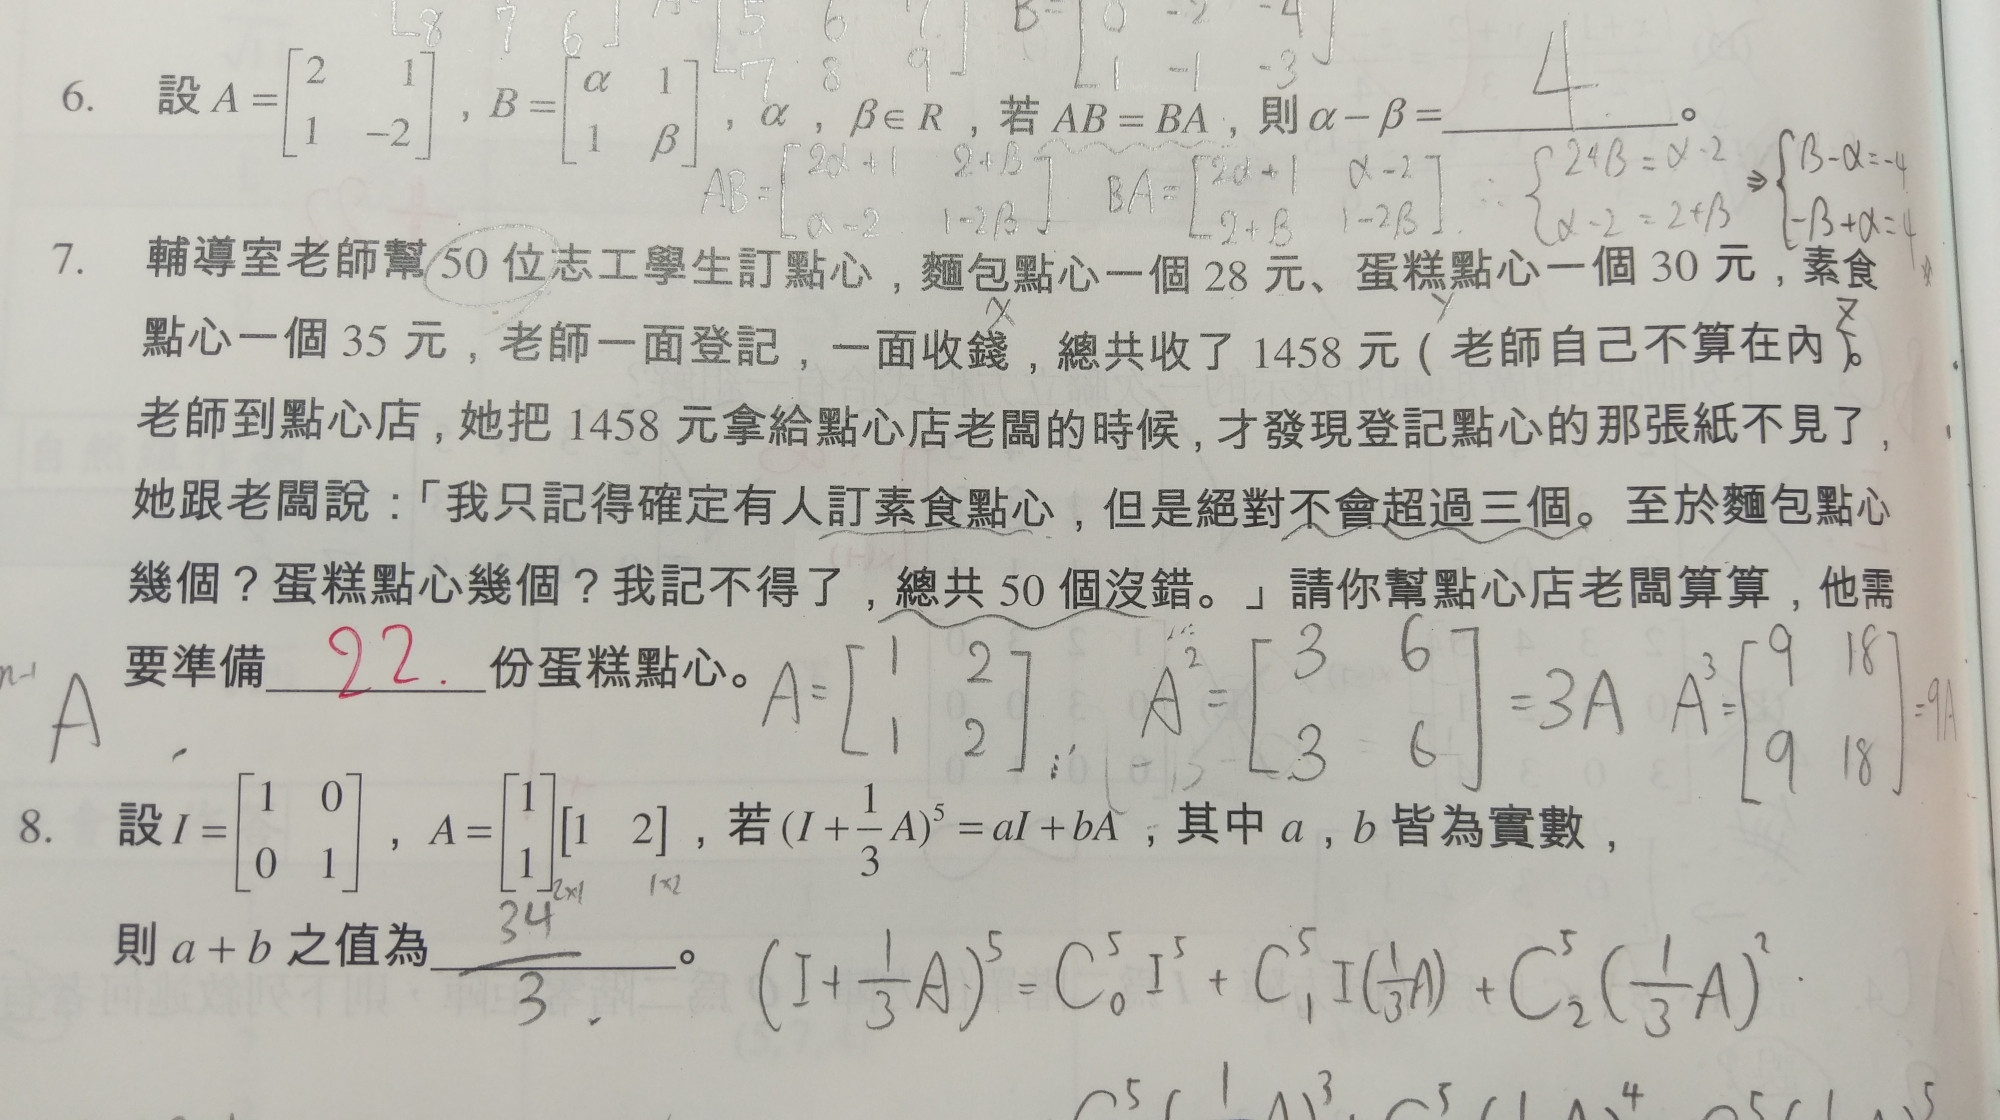 8 7 6 5 6 7 B= 0 -2 -4
7 8 9 1 -1 -3
6. 設 A = [2 1 1 -2] , B = [α 1 1 β] , α , β∈R , 若 AB = BA , 則 α − β = 4 。
AB= [2α+1 2+β α-2 1-2β] BA= [2α+1 α-2 2+β 1-2β] ∴ {2+β=α-2 α-2=2+β ⇒ {β-α=-4 -β+α=4
7. 輔導室老師幫 50 位志工學生訂點心，麵包點心一個 28 元、蛋糕點心一個 30 元，素食
x y z
點心一個 35 元，老師一面登記，一面收錢，總共收了 1458 元（老師自己不算在內）。
老師到點心店，她把 1458 元拿給點心店老闆的時候，才發現登記點心的那張紙不見了，
她跟老闆說：「我只記得確定有人訂素食點心，但是絕對不會超過三個。至於麵包點心
幾個？蛋糕點心幾個？我記不得了，總共 50 個沒錯。」請你幫點心店老闆算算，他需
要準備 22. 份蛋糕點心。
A= [1 2 1 2] A²= [3 6 3 6] =3A A³= [9 18 9 18] =9A
n-1
A
8. 設 I = [1 0 0 1] , A = [1 1] [1 2] , 若 (I + 1/3 A)⁵ = aI + bA , 其中 a , b 皆為實數 ,
2×1 1×2
則 a + b 之值為 34/3 。
(I+1/3 A)⁵ = C⁵₀ I⁵ + C⁵₁ I(1/3 A) + C⁵₂ (1/3 A)²